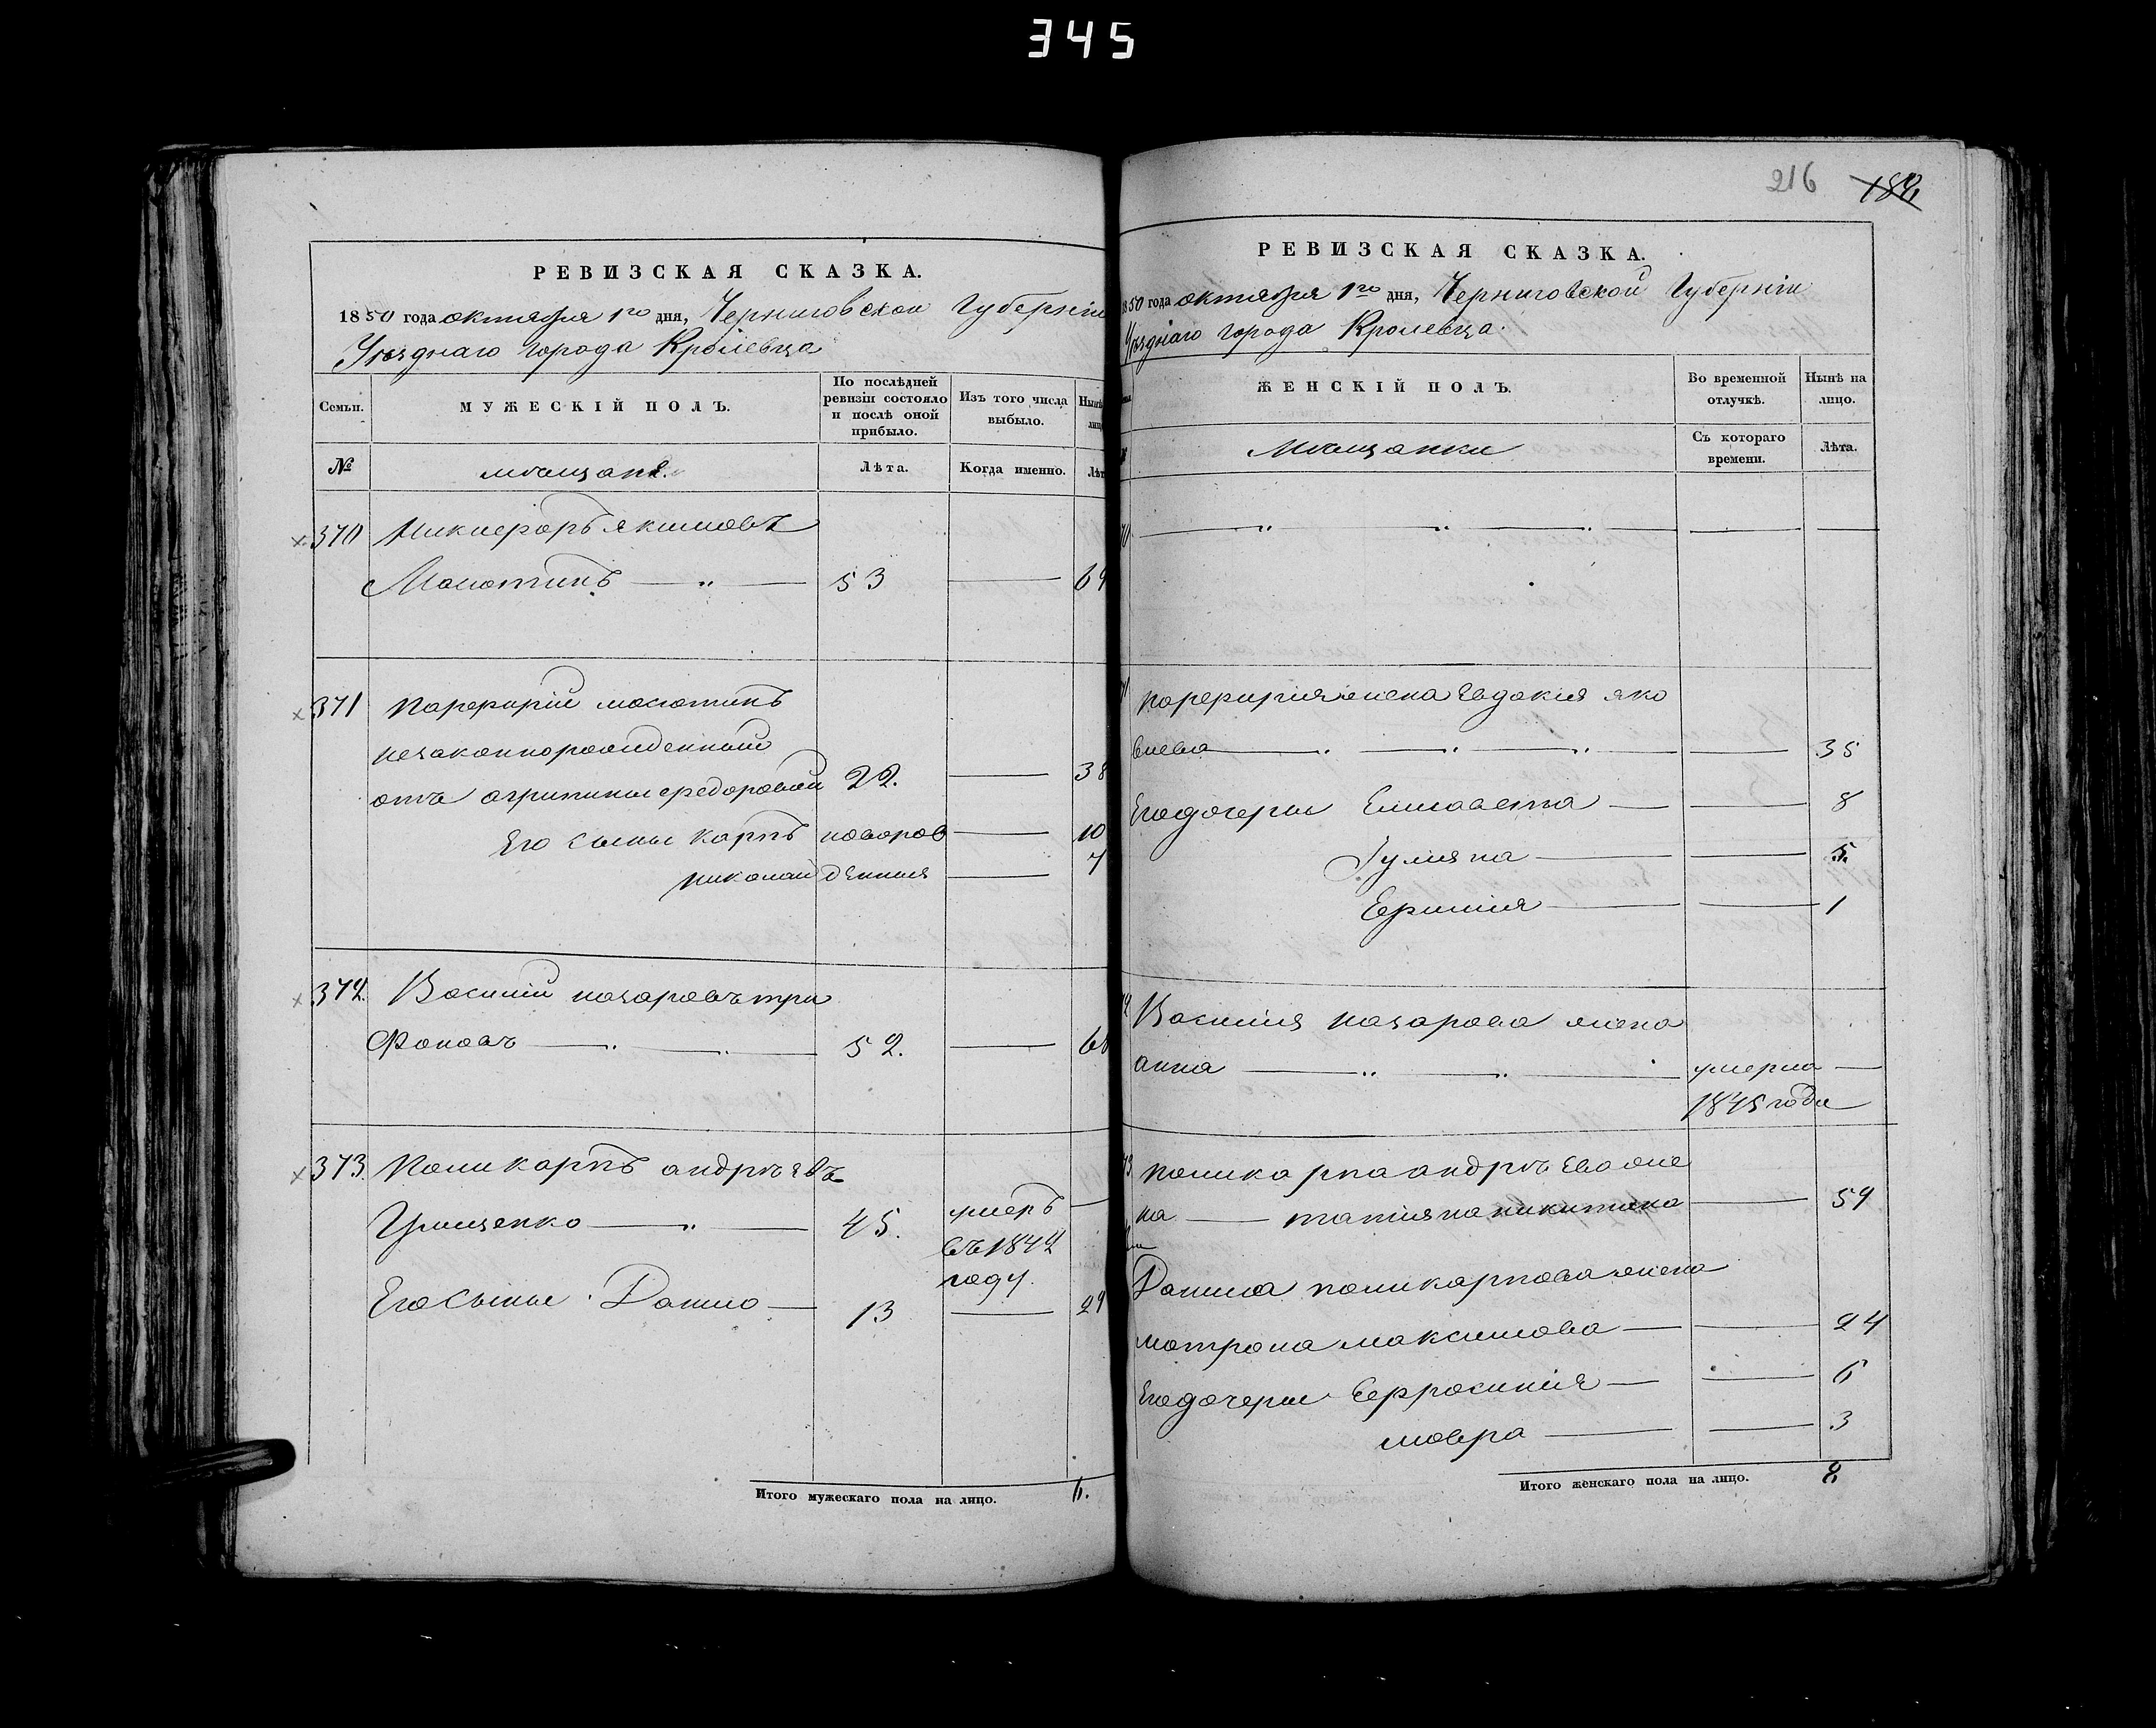 345
РЕВИЗСКАЯ СКАЗКА.
1850 года октября 1го дня, Черниговской Губерніи
Уѣзднаго города Кролевца
Семьи.
МУЖЕСКІЙ ПОЛЪ.
По послѣдней ревизіи состояло и послѣ оной прибыло.
Изъ того числа выбыло.
№
мѣщане.
Лѣта.
Когда именно.
370 Никифоръ Якимовъ
Молотикъ — „ — 53 — 69
371 Порфирій молотикъ
незаконнорожденный
отъ агрипины федоровой 22. — 38
Его сыны Карпъ новорож — 10
николай денныя — 7
372. Василий назаровъ три
фоновъ — „ — „ — 52. — 68
373. Поликарпъ андрѣевъ
Грищенко — „ — 45. умеръ —
въ 1842
году.
Его сыны Данило — 13 — 29
Итого мужескаго пола на лицо. 6.
216 189
РЕВИЗСКАЯ СКАЗКА.
1850 года октября 1го дня, Черниговской Губерніи
Уѣзднаго города Кролевца.
ЖЕНСКІЙ ПОЛЪ.
Во временной отлучкѣ.
Нынѣ на лицо.
Мѣщанки
Съ котораго времени.
Лѣта.
— „ — „ — „ — — —
порфирия жена Евдокия яко
влева — „ — „ — „ — — 35
Его дочеры Елисавета — — 8
Гулияна — — 5.
Ефимия — — 1
Василия назарова жена
анна — „ — „ — умерла —
1845 года
поликарпа андрѣева же
на — татияна никитина — 59
Данила поликарпова жена
мотрона максимова — — 24
Его дочеры Ефросиния — — 6
мавра — — 3
Итого женскаго пола на лицо. 8.